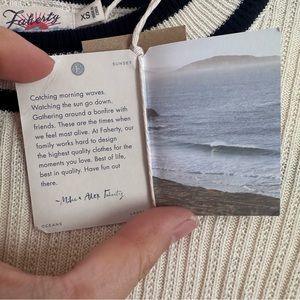 Faherty
XS
SUNSET
Catching morning waves.
Watching the sun go down.
Gathering around a bonfire with
friends. These are the times when
we feel most alive. At Faherty, our
family works hard to design
the highest quality clothes for the
moments you love. Best of life,
best in quality. Have fun out
there
~Mike & Alex Faherty
OCEANS